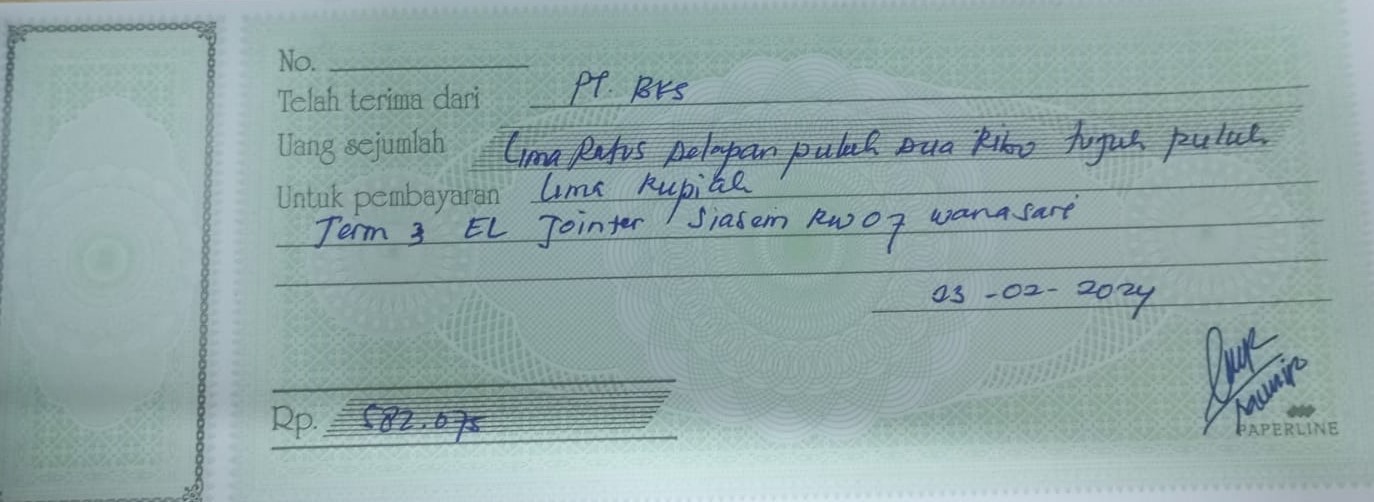 No.
Telah terima dari PT. BKS
Uang sejumlah Lima Ratus Delapan puluh Dua Ribu tujuh puluh
Untuk pembayaran Lima Rupiah
Term 3 EL Jointer / Siasem RW 07 wanasari
03 -02- 2024
Rp. 582.075
PAPERLINE